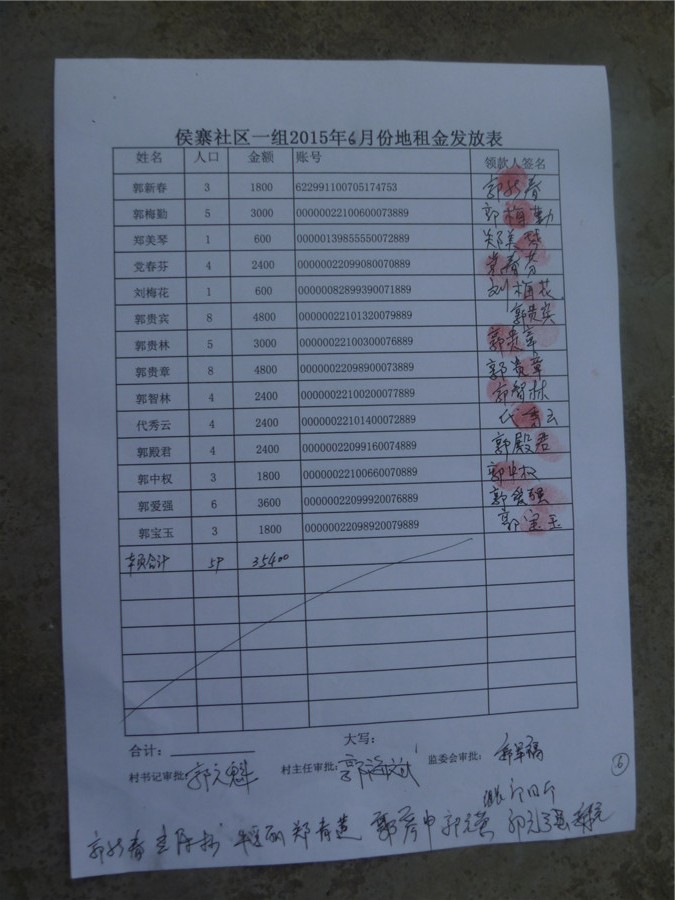 侯寨社区一组2015年6月份地租金发放表
姓名 人口 金额 账号 领款人签名
郭新春 3 1800 622991100705174753 郭新春
郭梅勤 5 3000 00000022100600073889 郭梅勤
郑美琴 1 600 00000139855550072889 郑美琴
党春芬 4 2400 00000022099080070889 党春芬
刘梅花 1 600 00000082899390071889 刘梅花
郭贵宾 8 4800 00000022101320079889 郭贵宾
郭贵林 5 3000 00000022100300076889 郭贵章
郭贵章 8 4800 00000022098900073889 郭贵章
郭智林 4 2400 00000022100200077889 郭智林
代秀云 4 2400 00000022101400072889 代秀云
郭殿君 4 2400 00000022099160074889 郭殿君
郭中权 3 1800 00000022100660070889 郭中权
郭爱强 6 3600 00000022099920076889 郭爱强
郭宝玉 3 1800 00000022098920079889 郭宝玉
本页合计 59 35400
合计： 大写：
村书记审批： 郭文魁 村主任审批： 监委会审批：
6
郭新春 郑青莲